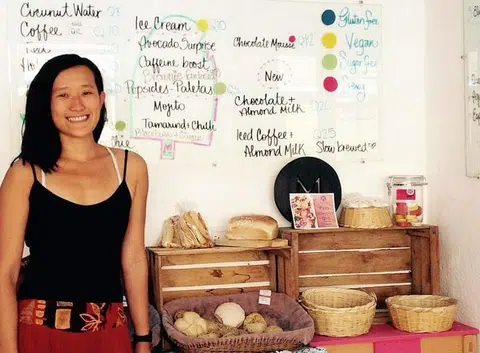 Coconut Water Q25
Coffee
Ice Cream Q10
Avocado Surprise
Caffeine boost
Popsicles-Paletas
Mojito
Tamarind + Chili
Chocolate Mousse Q12
New
Chocolate +
Almond Milk
Iced Coffee + Q25
Almond Milk Slow brewed
Gluten Free
Vegan
Sugar Free
Soy